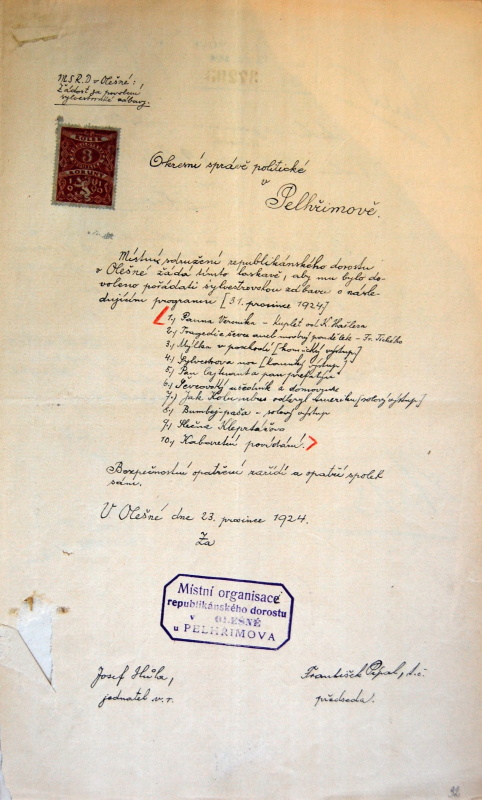 M.S.R.D. v Olešné:
Žádost za povolení
sylvestrovské zábavy.
KOLEK
3
KORUNY
Okresní správě politické
v
Pelhřimově.
Místní sdružení republikánského dorostu
v Olešné žádá tímto laskavě, aby mu bylo do-
voleno pořádati sylvestrovskou zábavu o násle-
dujícím programu [31. prosince 1924]
1.) Panna Veronka - kuplet od K. Hašlera
2.) Tragedie ševce aneb modrý pondělek - Fr. Tichého
3.) Mýlka v poschodí [komický výstup]
4.) Sylvestrova noc [komický výstup]
5.) Pan Cajtnant a pan
6.) Ševcovský učedník a domovnice
7.) Jak Kolumbus odkryl Ameriku [solový výstup]
8.) Bumbaj-paša - solový výstup
9.) Slečna
10.) Kabaretní povídání.
Bezpečnostní opatření zařídí a opatří spolek
sám.
V Olešné dne 23. prosince 1924.
Za
Místní organisace
republikánského dorostu
v OLEŠNÉ
u PELHŘIMOVA
Josef Hůla,
jednatel v. r.
František
předseda.